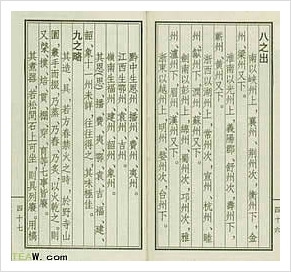 八之出
山南以峽州上，襄州、荊州次，衡州下，金
州、梁州又下。
淮南以光州上，義陽郡、舒州次，壽州下，
蘄州、黃州又下。
浙西以湖州上，常州次，宣州、杭州、睦
州、歙州下，潤州、蘇州又下。
劍南以彭州上，綿州、蜀州次，邛州次，雅
州、瀘州下，眉州、漢州又下。
浙東以越州上，明州、婺州次，台州下。
四十六
黔中生恩州、播州、費州、夷州。
江西生鄂州、袁州、吉州。
嶺南生福州、建州、韶州、象州。
其恩、播、費、夷、鄂、袁、吉、福、建、
韶、象十一州未詳，往往得之，其味極佳。
九之略
其造、具，若方春禁火之時，於野寺山
園，叢手而掇，乃蒸，乃舂，乃炙，以火乾之，則
又棨、撲、焙、貫、棚、穿、育等七事皆廢。
其煮器，若松間石上可坐，則具列廢。用槁
四十七